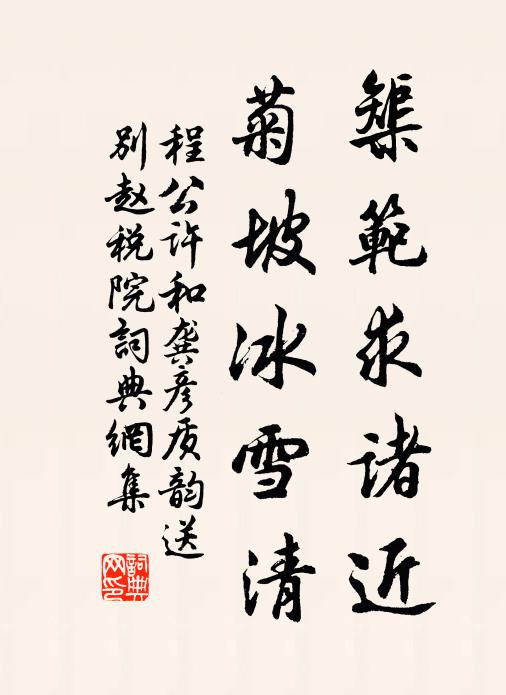 榘範求诸近
菊坡冰雪清
程公许和龚彦质韵送
别赵税院詞典網集
詞典
网印